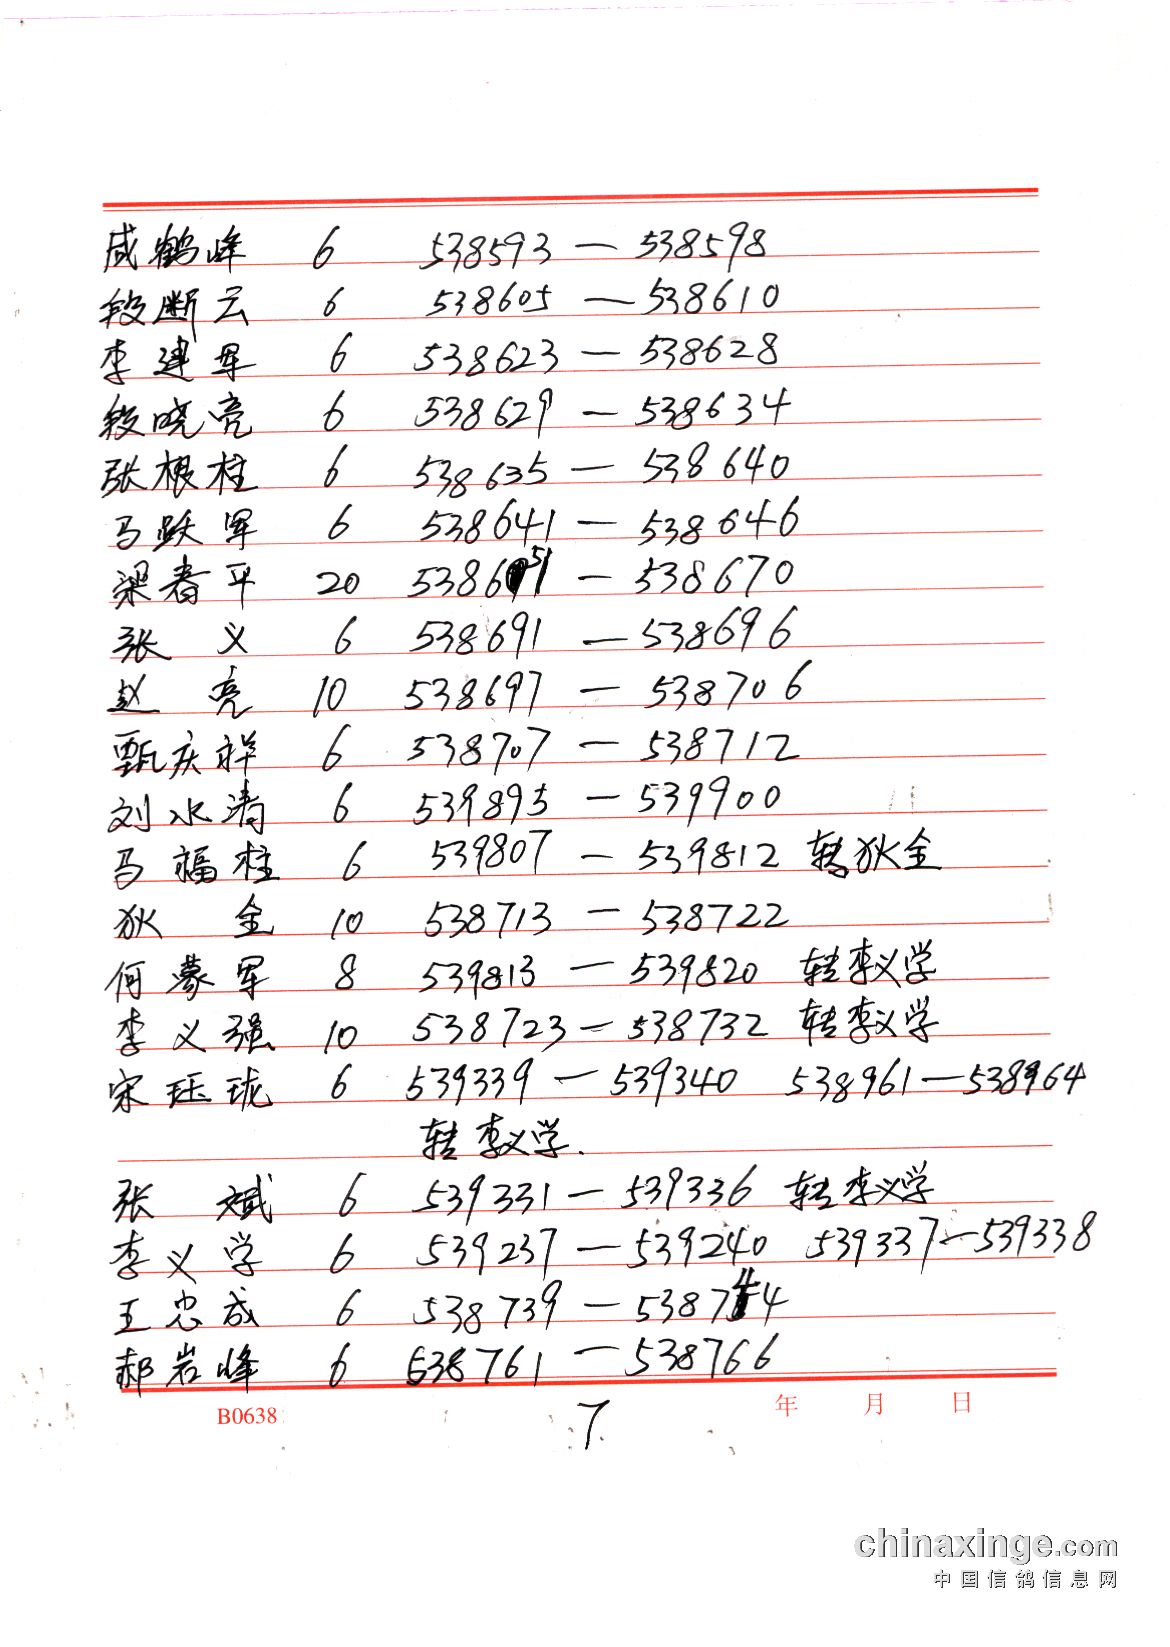 咸鹤峰 6 538593 — 538598
段断云 6 538605 — 538610
李建军 6 538623 — 538628
段晓亮 6 538629 — 538634
张根柱 6 538635 — 538640
马跃军 6 538641 — 538646
梁春平 20 538651 — 538670
张义 6 538691 — 538696
赵亮 10 538697 — 538706
甄庆祥 6 538707 — 538712
刘水清 6 539895 — 539900
马福柱 6 539807 — 539812 转狄全
狄全 10 538713 — 538722
何蒙军 8 539813 — 539820 转李义学
李义强 10 538723 — 538732 转李义学
宋珏珑 6 539339 — 539340 538961 — 538964
转李义学.
张斌 6 539331 — 539336 转李义学
李义学 6 539237 — 539240 539337 — 539338
王忠成 6 538739 — 538744
郝岩峰 6 538761 — 538766
B0638 7 年 月 日
chinaxinge.com
中国信鸽信息网